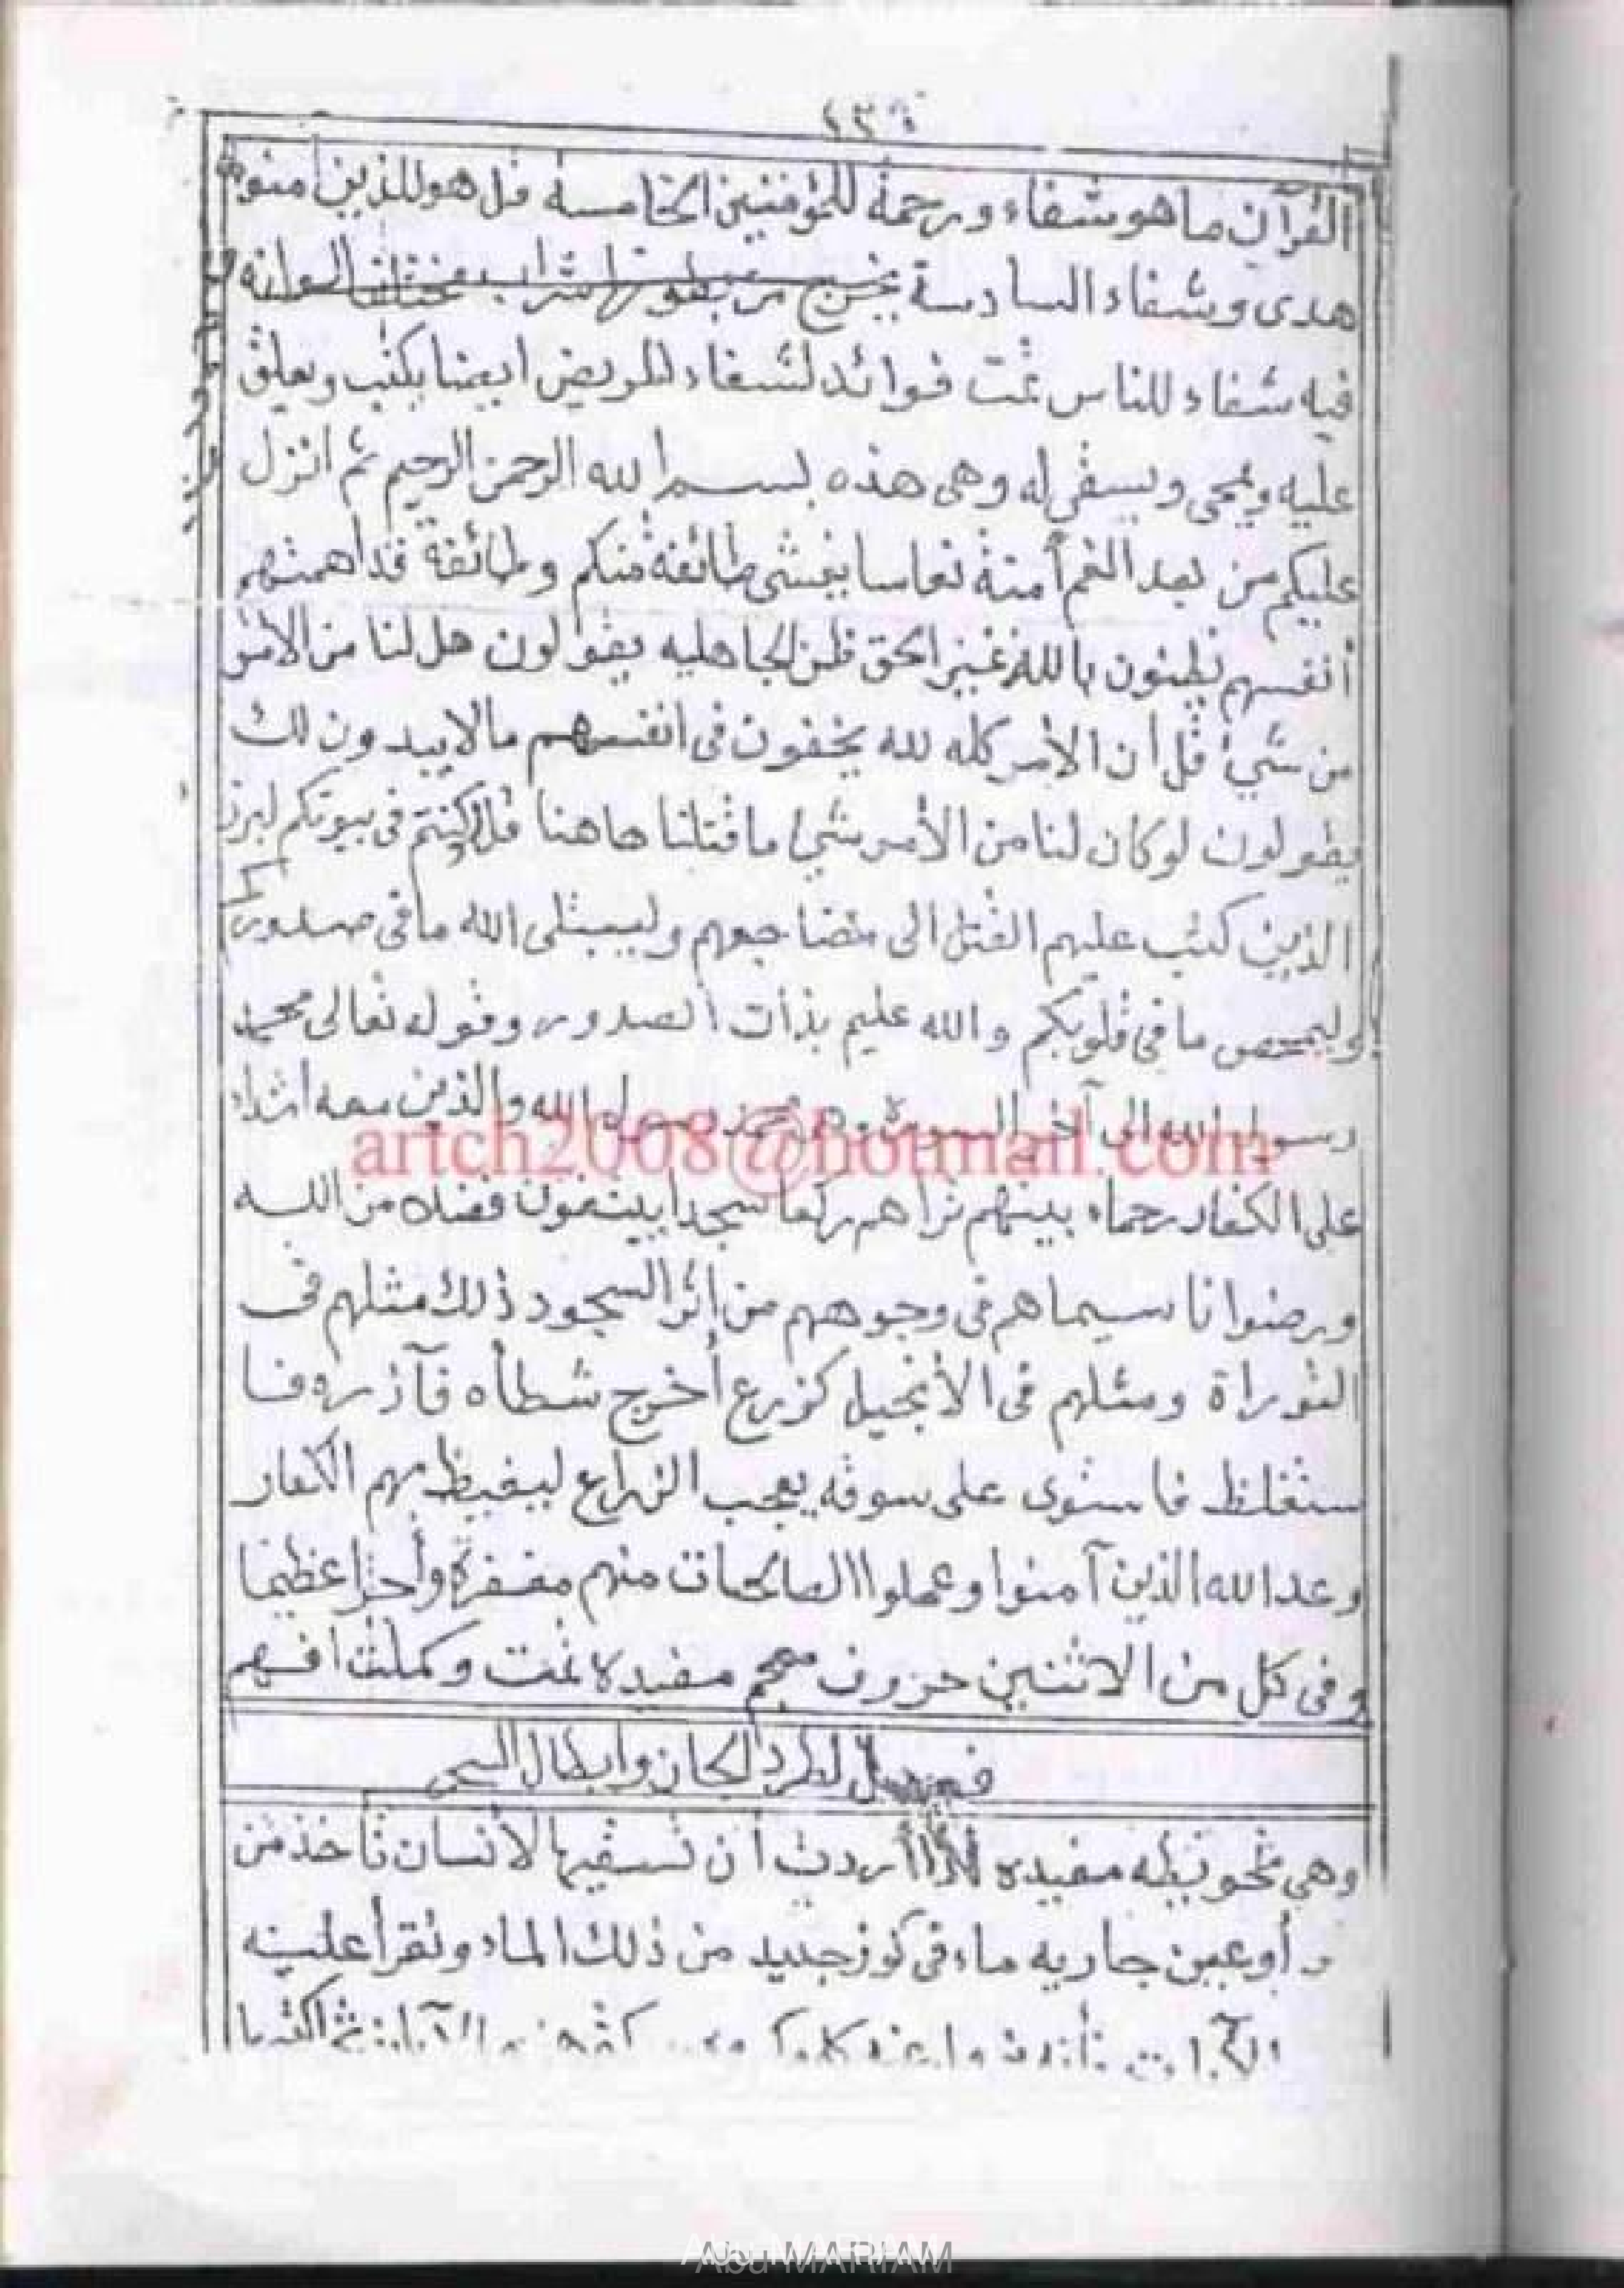 ١٣٠
القرآن ما هو شفاء ورحمة للمؤمنين الخامسة قل هو للذين امنوا
هدى وشفاء السادسة يخرج من بطونها شراب مختلف الوانه
فيه شفاء للناس تمت فوائد لشفاء للمريض ايضا يكتب ويعلق
عليه ويمحى ويسقى له وهى هذه بسم الله الرحمن الرحيم ثم انزل
عليكم من بعد الغم أمنة نعاسا يغشى طائفة منكم وطائفة قد اهمتهم
أنفسهم يظنون بالله غير الحق ظن الجاهليه يقولون هل لنا من الأمر
من شيئ قل أن الأمر كله لله يخفون فى انفسهم مالايبدون لك
يقولون لوكان لنا من الأمر شيئ ما قتلنا هاهنا قل لو كنتم فى بيوتكم لبرز
الذين كتب عليهم القتل الى مضاجعهم وليبتلى الله مافى صدوركم
وليمحص ما فى قلوبكم والله عليم بذات الصدور وقوله تعالى محمد
رسول الله الى آخر السورة محمد رسول الله والذين معه اشداء
على الكفار رحماء بينهم تراهم ركعا سجدا يبتغون فضلا من الله
ورضوانا سيماهم فى وجوههم من اثر السجود ذلك مثلهم فى
التوراة ومثلهم فى الأنجيل كزرع أخرج شطأه فآزره فا
ستغلظ فاستوى على سوقه يعجب الزراع ليغيظ بهم الكفار
وعد الله الذين آمنوا وعملوا الصالحات منهم مغفرة وأجرا عظيما
وفى كل من الاثنين حروف معجم مفيده تمت وكملت افهم
فصل لطرد الجان وابطال السحر
وهى تحويطه مفيده اذا اردت أن تسقيها لأنسان تأخذ من
أوعين جاريه ماء فى كوز جديد من ذلك الماء وتقرأ عليه
artch2008@hotmail.com
Abu MARIAM